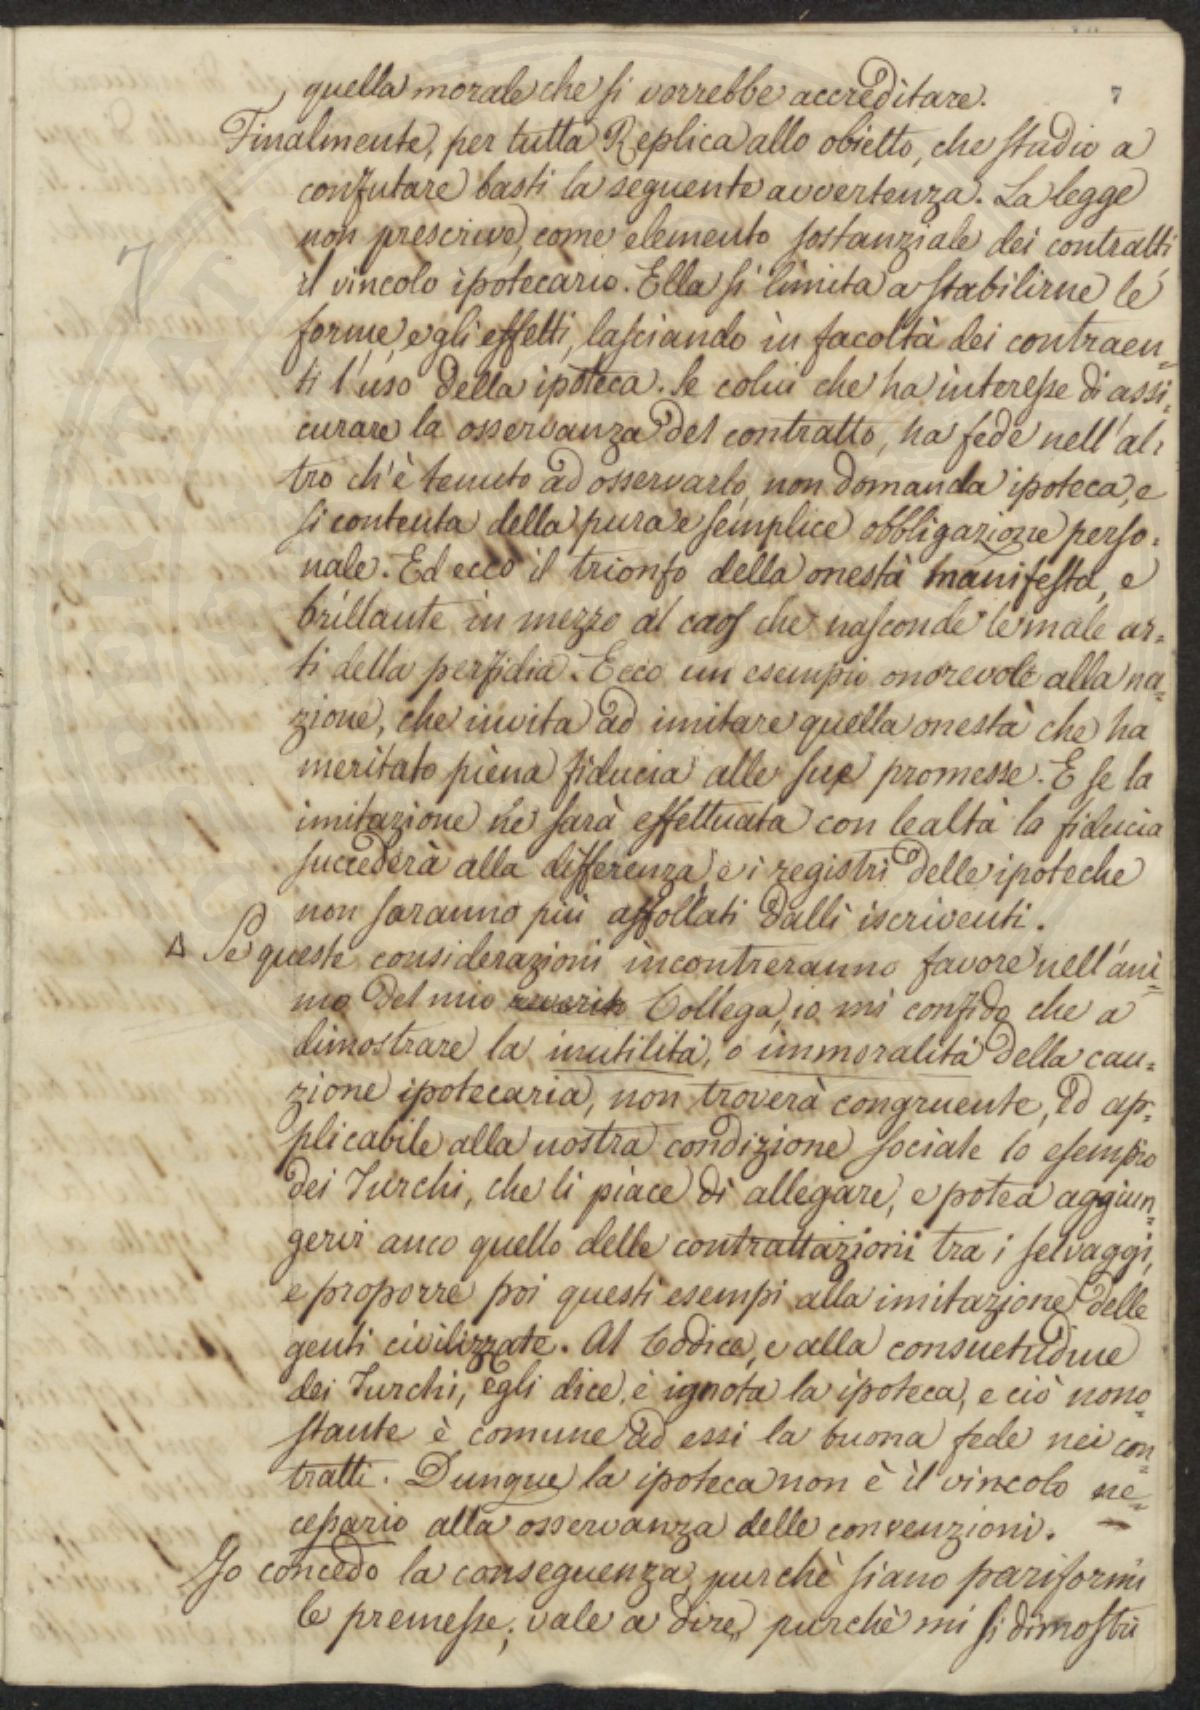 7
quella morale che si vorrebbe accreditare.
Finalmente, per tutta Replica allo obietto, che studio a
confutare basti la seguente avvertenza. La legge
non prescrive, come elemento sostanziale dei contratti
7
il vincolo ipotecario. Ella si limita a stabilirne le
forme, e gli effetti, lasciando in facoltà dei contraen=
ti l'uso della ipoteca. Se colui che ha interesse di assi=
curare la osservanza del contratto, ha fede nell'al=
tro ch'è tenuto ad osservarlo, non domanda ipoteca, e
si contenta della pura e semplice obbligazione perso=
nale. Ed ecco il trionfo della onestà manifesta, e
brillante in mezzo al caos che nasconde le male ar=
ti della perfidia. Ecco un esempio onorevole alla na=
zione, che invita ad imitare quella onestà che ha
meritato piena fiducia alle sue promesse. E se la
imitazione ne sarà effettuata con lealtà la fiducia
succederà alla differenza, e i registri delle ipoteche
non saranno più affollati dalli iscriventi.
Δ Se queste considerazioni incontreranno favore nell'ani=
mo del mio Collega, io mi confido che a
dimostrare la inutilità, o immoralità della cau=
zione ipotecaria, non troverà congruente, ed ap=
plicabile alla nostra condizione sociale lo esempio
dei Turchi, che li piace di allegare, e potea aggiun=
gervi anco quello delle contrattazioni tra i selvaggi,
e proporre poi questi esempi alla imitazione delle
genti civilizzate. Al Codice, e alla consuetudine
dei Turchi, egli dice, è ignota la ipoteca, e ciò nono=
stante è comune ad essi la buona fede nei con=
tratti. Dunque la ipoteca non è il vincolo ne=
cessario alla osservanza delle convenzioni.
Io concedo la conseguenza, purchè siano pariformi
le premesse; vale a dire, purchè mi si dimostri